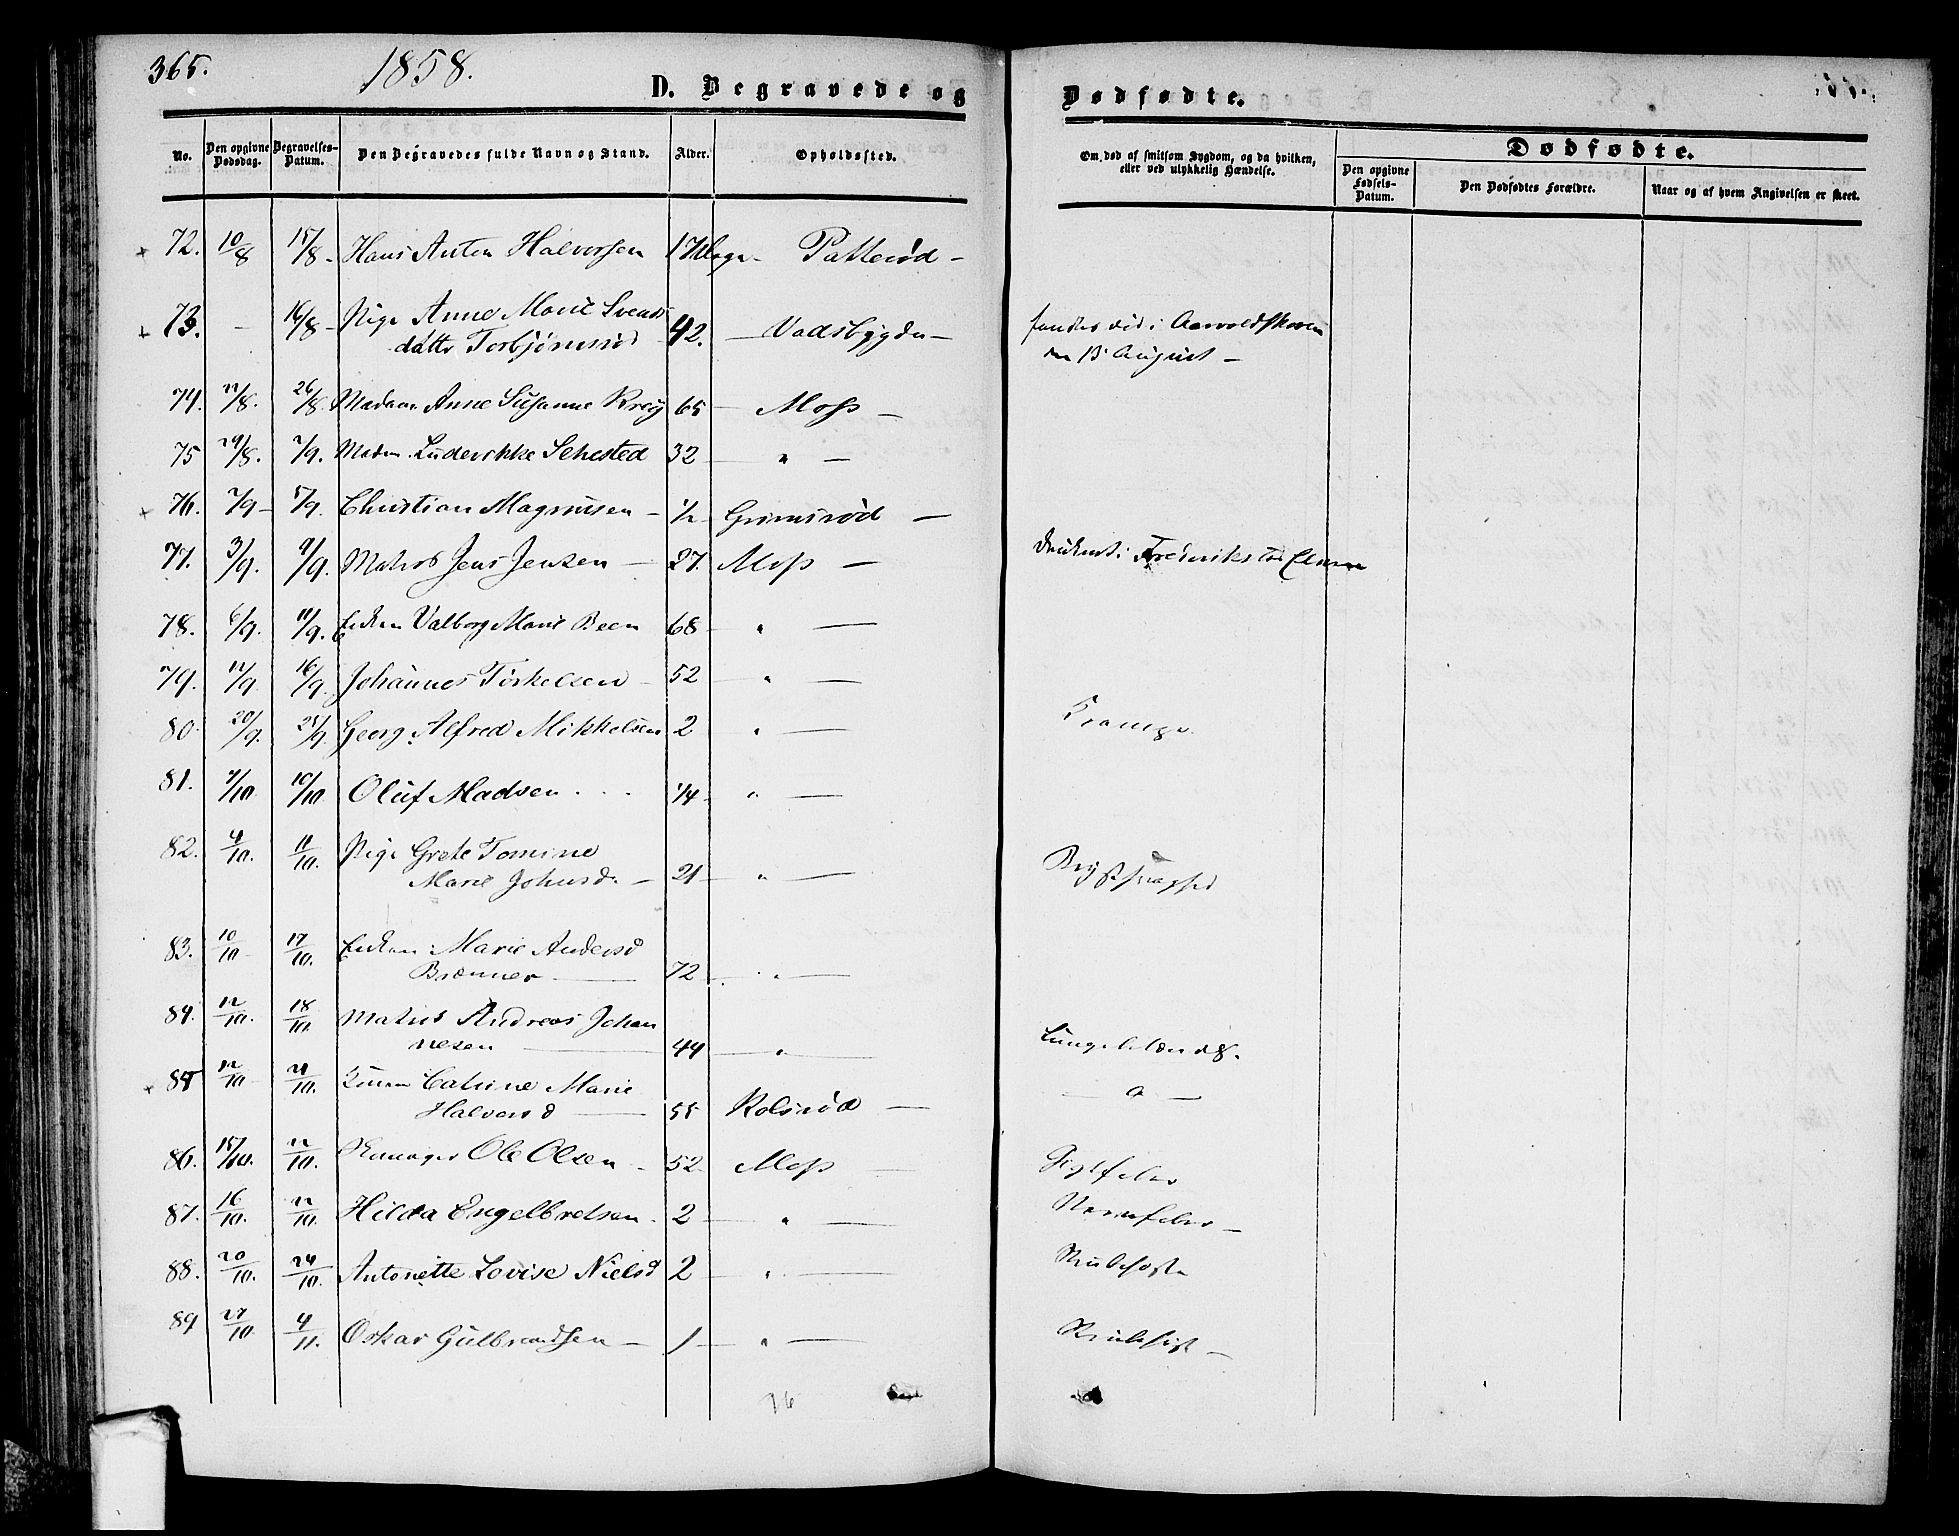 365. 1858.
D. Begravede og Dødfødte.
No. Den opgivne Dødsdag. Begravelses-Datum. Den Begravedes fulde Navn og Stand. Alder. Opholdssted. Om død af smitsom Sygdom, og da hvilken, eller ved ulykkelig Hændelse. Dødfødte.
Den opgivne Fødsels-Datum. Den Dødfødtes Forældre. Naar og af hvem Angivelsen er skeet.
72. 10/8 15/8 - Hans Anton Halvorsen 17 Dage - Patterød -
73. - 16/8 - Pige Anne Marie Svends
datter Torbjørnsrød 42. - Vadsbygden - fandtes død i Aarvoldskoven
den 13 August -
74. 22/8. 26/8. Madam Anne Susanne Krey 65 - Moss -
75 29/8. 2/9. Madm. Ludevikke Sehested 32 - " -
76. 2/9 - 5/9. Christian Magnusen - 1/2 - Grimsrød -
77. 3/9. 9/9. Matros Jens Jensen - 27. Moss - druknet i Frederikstad Elven
78. 6/9. 11/9. Enken Valborg Marie Been 68 - " -
79. 12/9. 16/9. Johannes Torkelsen - 52 - " -
80. 20/9. 25/9. Georg Alfred Mikkelsen 2 " - Krampe.
81. 4/10. 10/10. Oluf Madsen . . . 1/4 - " -
82. 4/10. 11/10. Pige Grete Tomine
Marie Johnsd. - 21 - " - Brystsvaghed
83. 10/10 - 17/10. Enken Marie Andersd
Brænner - 72 - " -
84. 12/10. 18/10. Matros Andreas Johan
nesen - 44 - " - Lungebetændes.
85 12/10 - 21/10. Konen Catrine Marie
Halvorsd - 55 Rolsrød - - " -
86. 15/10. 22/10. Ole Olsen - 52 - Moss - Gigtfeber
87. 16/10. 22/10. Hilda Engelbretsen. 2 - " - Nervefeber -
88. 20/10. 24/10. Antonette Lovise Nielsd 2 - " - Strubehoste
89 27/10. 4/11. Oskar Gulbrandsen - 1 - " - Strubehoste -
16